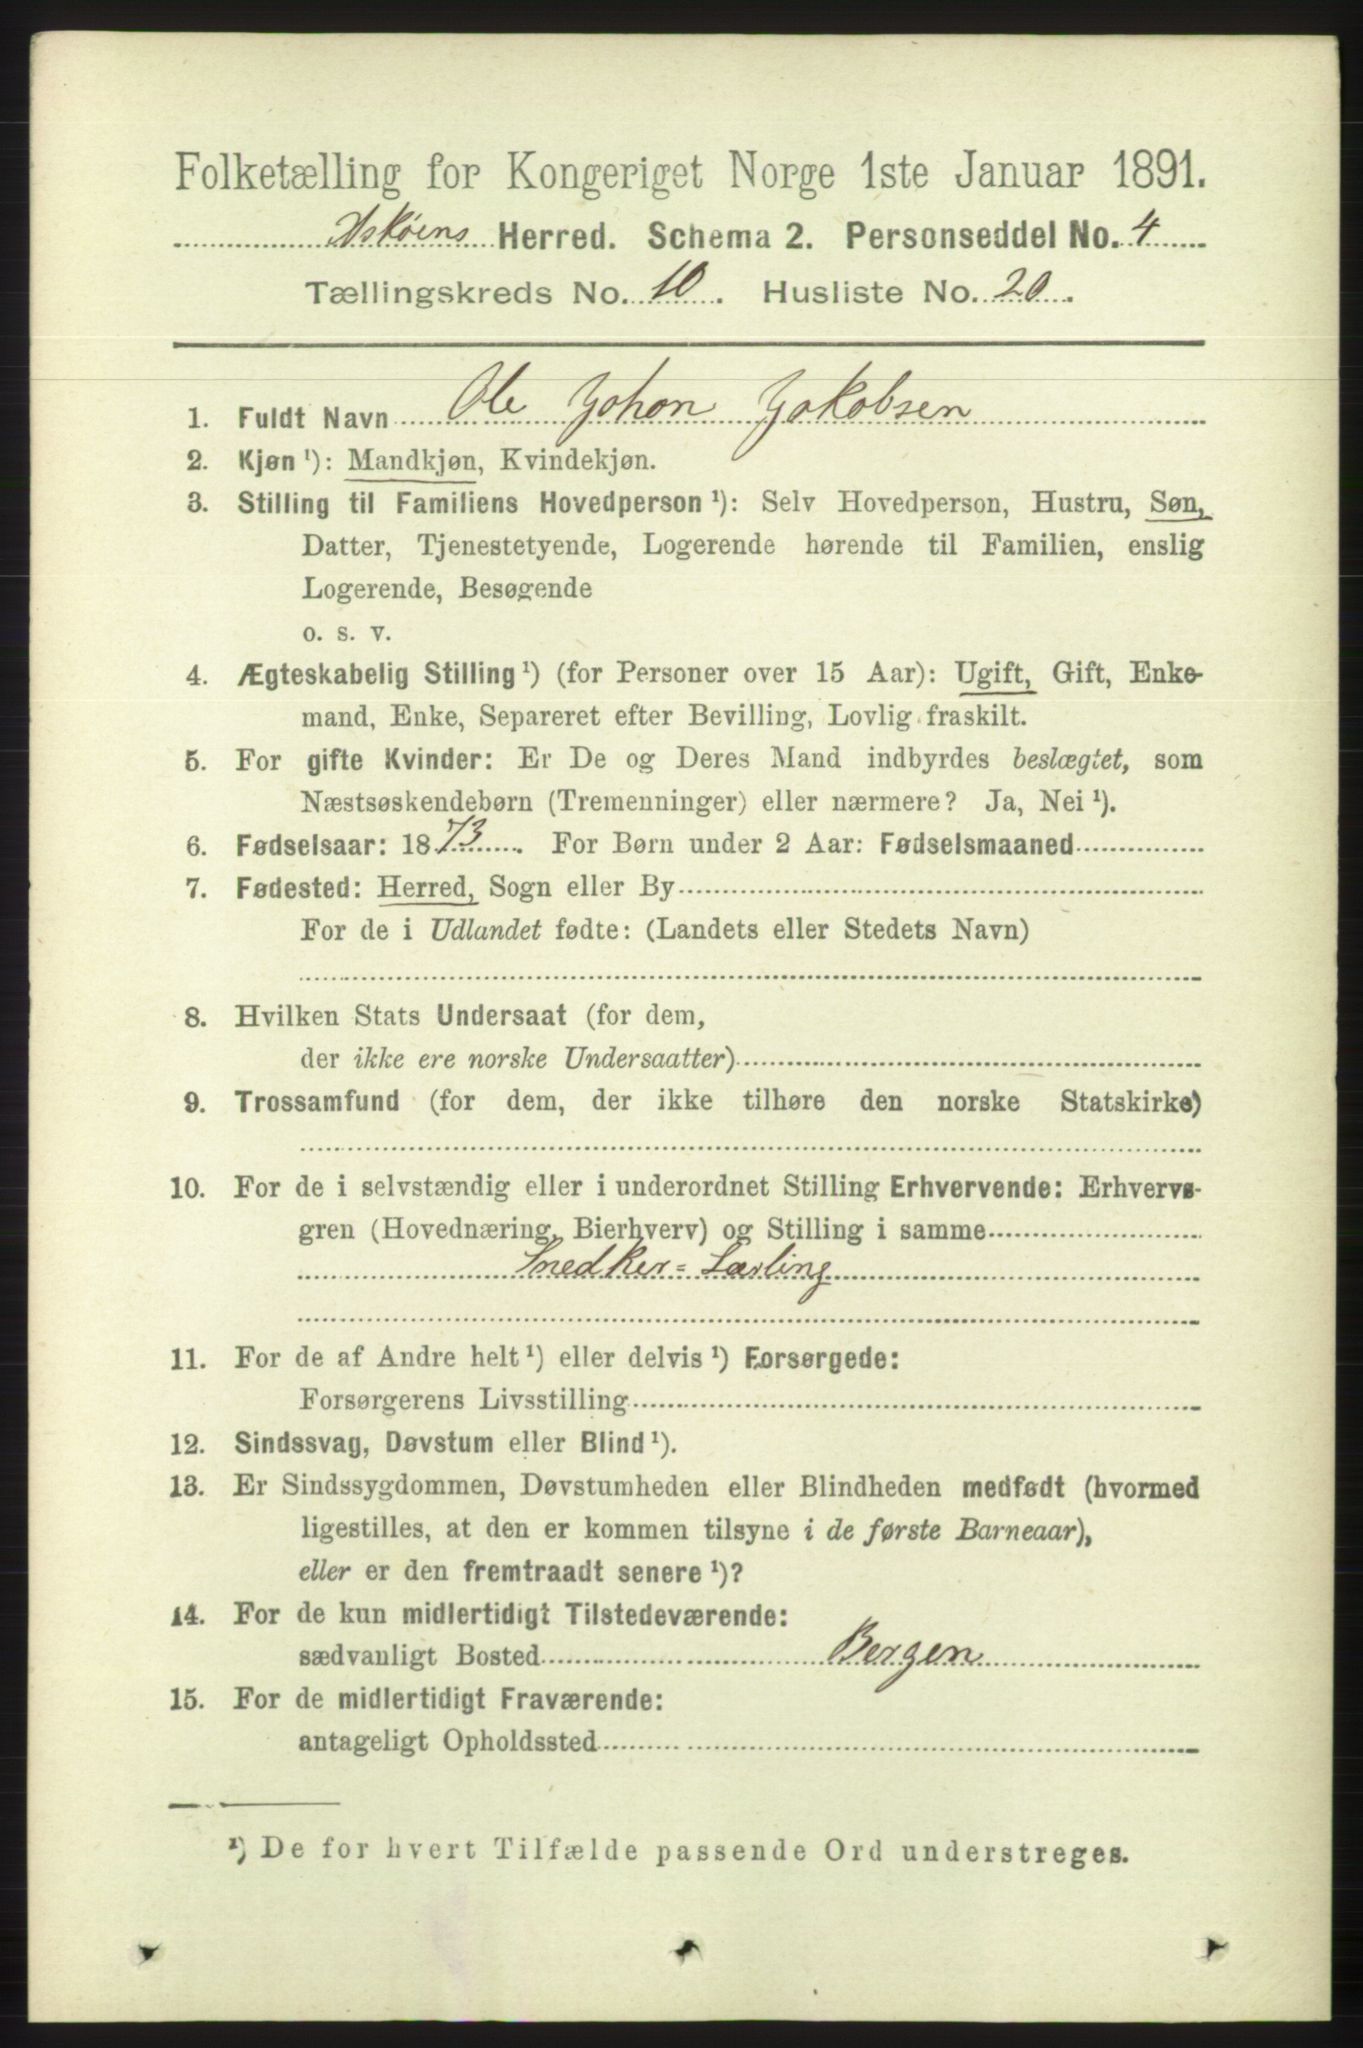 Folketælling for Kongeriget Norge 1ste Januar 1891.
Askøens Herred. Schema 2. Personseddel No. 4
Tællingskreds No. 10. Husliste No. 20.
1. Fuldt Navn Ole Johan Jakobsen
2. Kjøn ¹): Mandkjøn, Kvindekjøn.
3. Stilling til Familiens Hovedperson ¹): Selv Hovedperson, Hustru, Søn,
Datter, Tjenestetyende, Logerende hørende til Familien, enslig
Logerende, Besøgende
o. s. v.
4. Ægteskabelig Stilling ¹) (for Personer over 15 Aar): Ugift, Gift, Enke-
mand, Enke, Separeret efter Bevilling, Lovlig fraskilt.
5. For gifte Kvinder: Er De og Deres Mand indbyrdes beslægtet, som
Næstsøskendebørn (Tremenninger) eller nærmere? Ja, Nei ¹).
6. Fødselsaar: 1873. For Børn under 2 Aar: Fødselsmaaned
7. Fødested: Herred, Sogn eller By
For de i Udlandet fødte: (Landets eller Stedets Navn)
8. Hvilken Stats Undersaat (for dem,
der ikke ere norske Undersaatter)
9. Trossamfund (for dem, der ikke tilhøre den norske Statskirke)
10. For de i selvstændig eller i underordnet Stilling Erhvervende: Erhvervs-
gren (Hovednæring, Bierhverv) og Stilling i samme
Snedker=Lærling
11. For de af Andre helt ¹) eller delvis ¹) Forsørgede:
Forsørgerens Livsstilling
12. Sindssvag, Døvstum eller Blind ¹).
13. Er Sindssygdommen, Døvstumheden eller Blindheden medfødt (hvormed
ligestilles, at den er kommen tilsyne i de første Barneaar),
eller er den fremtraadt senere ¹)?
14. For de kun midlertidigt Tilstedeværende:
sædvanligt Bosted Bergen
15. For de midlertidigt Fraværende:
antageligt Opholdssted
¹) De for hvert Tilfælde passende Ord understreges.